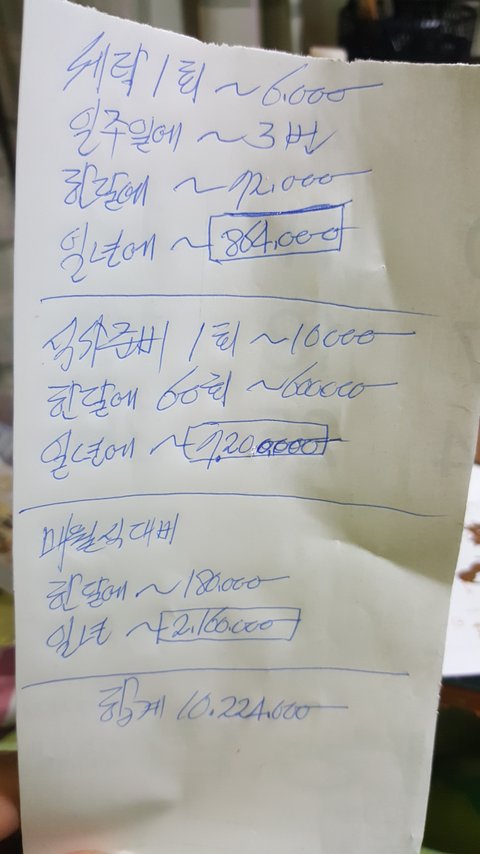 세탁 1회 ~6.000
일주일에 ~3번
한달에 ~72.000
일년에 ~864.000
식사준비 1회 ~10000
한달에 60회 ~600000
일년에 ~7.200.000
매월식대비
한달에 ~180.000
일년 ~2.160.000
합계 10.224.000